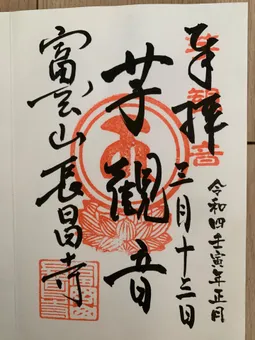 奉拝
令和四壬寅年正月
三月十三日
芋観音
富雲山長昌寺